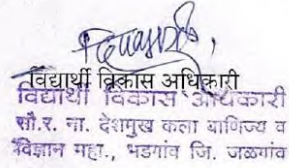 विद्यार्थी विकास अधिकारी
विद्यार्थी विकास अधिकारी
सौ.र. ना. देशमुख कला वाणिज्य व
विज्ञान महा., भडगांव जि. जळगांव